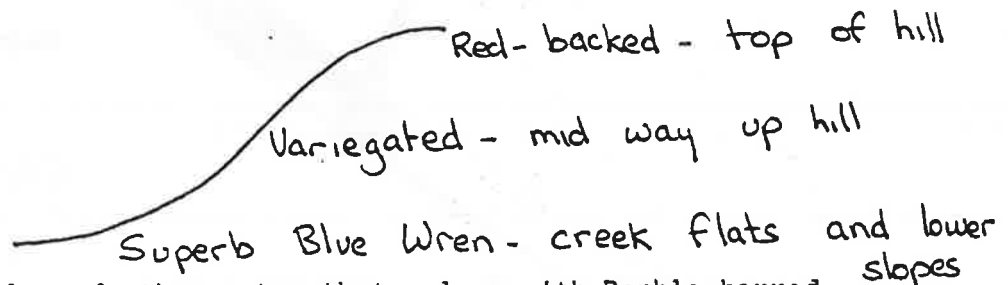 Red-backed - top of hill
Variegated - mid way up hill
Superb Blue Wren - creek flats and lower
slopes